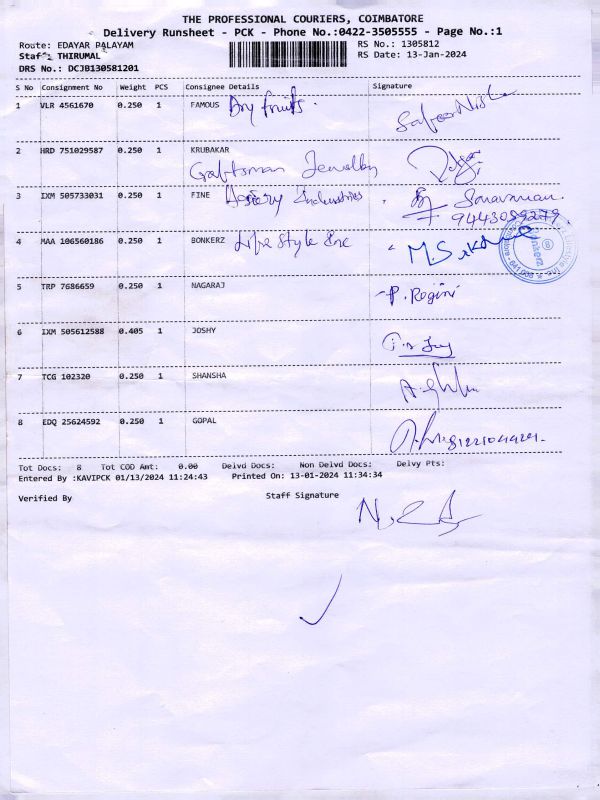 THE PROFESSIONAL COURIERS, COIMBATORE
Delivery Runsheet - PCK - Phone No.:0422-3505555 - Page No.:1
Route: EDAYAR PALAYAM
RS No.: 1305812
Staff: THIRUMAL
RS Date: 13-Jan-2024
DRS No.: DCJB130581201
S No Consignment No Weight PCS Consignee Details Signature
1 VLR 4561670 0.250 1 FAMOUS Dry fruits.
2 HRD 751029587 0.250 1 KRUBAKAR
Craftsman Jewellry
3 IXM 505733031 0.250 1 FINE Hosiery Industries Saravanan
9443059279
4 MAA 106560186 0.250 1 BONKERZ Life Style Inc
5 TRP 7686659 0.250 1 NAGARAJ P. Regini
6 IXM 505612588 0.405 1 JOSHY
7 TCG 102320 0.250 1 SHANSHA
8 EDQ 25624592 0.250 1 GOPAL
Tot Docs: 8 Tot COD Amt: 0.00 Delvd Docs: Non Delvd Docs: Delvy Pts:
Entered By :KAVIPCK 01/13/2024 11:24:43 Printed On: 13-01-2024 11:34:34
Verified By Staff Signature